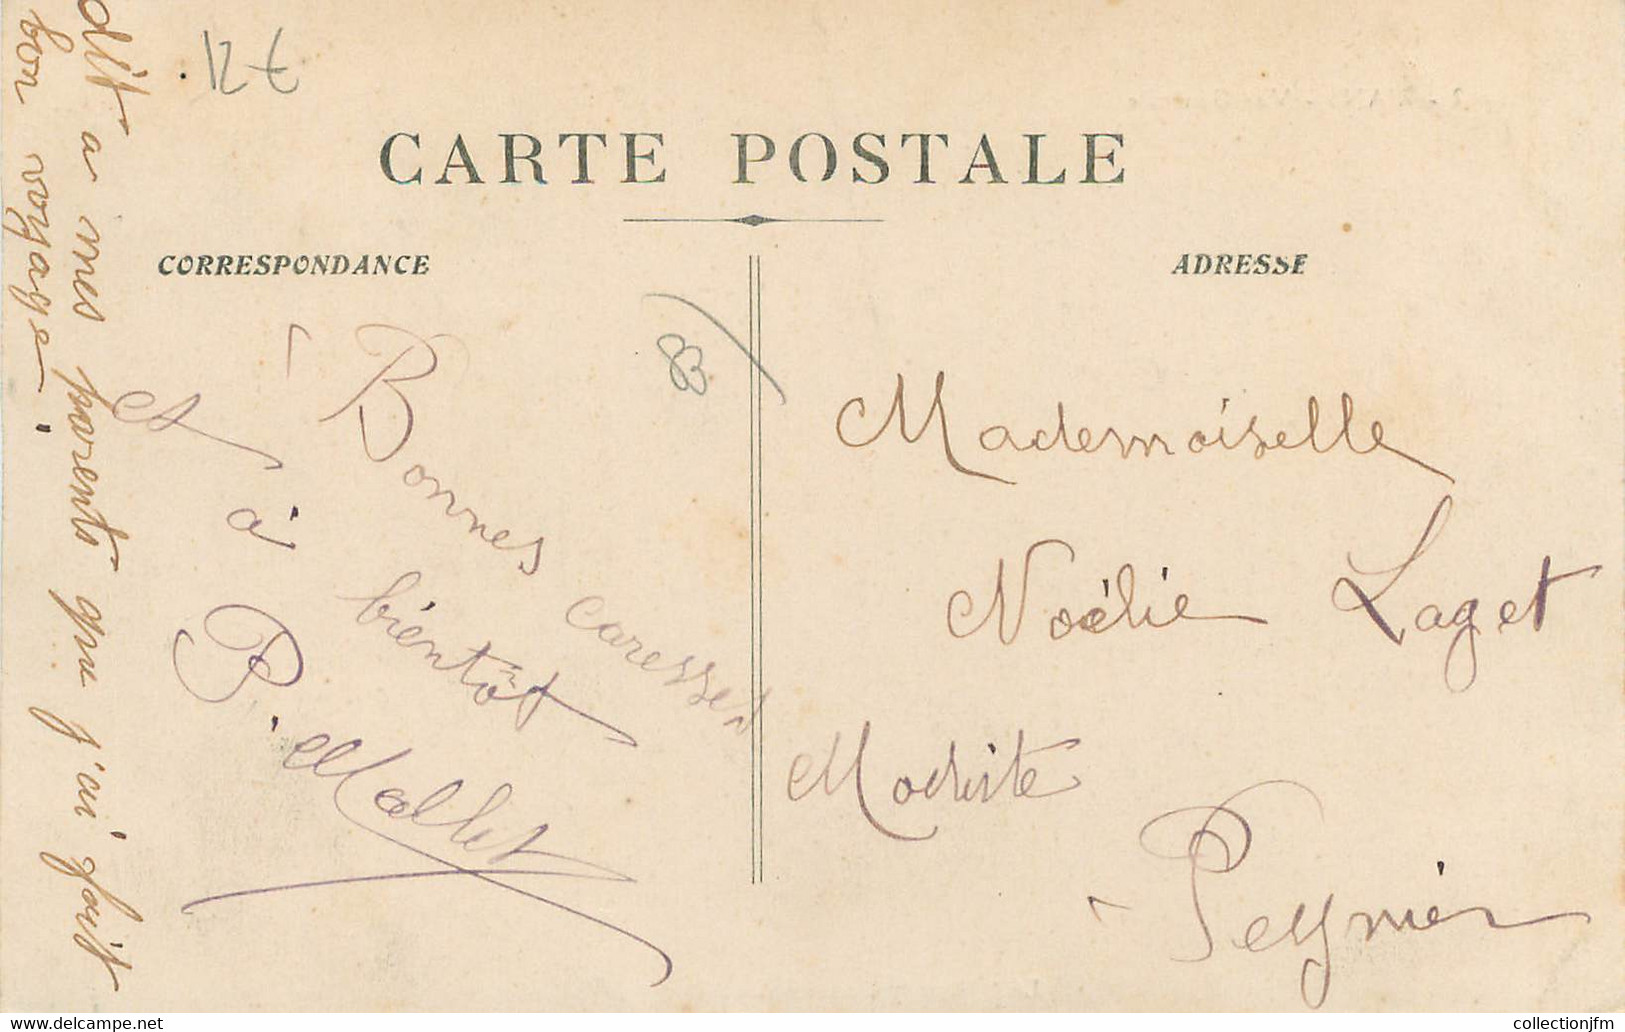 12 €
CARTE POSTALE
CORRESPONDANCE
ADRESSE
83
Bonnes caresses
et à bientôt
P. Mallet
dit a mes parents que j'ai fait
bon voyage.
Mademoiselle
Noélie Laget
Modiste
Peynier
collectionjfm